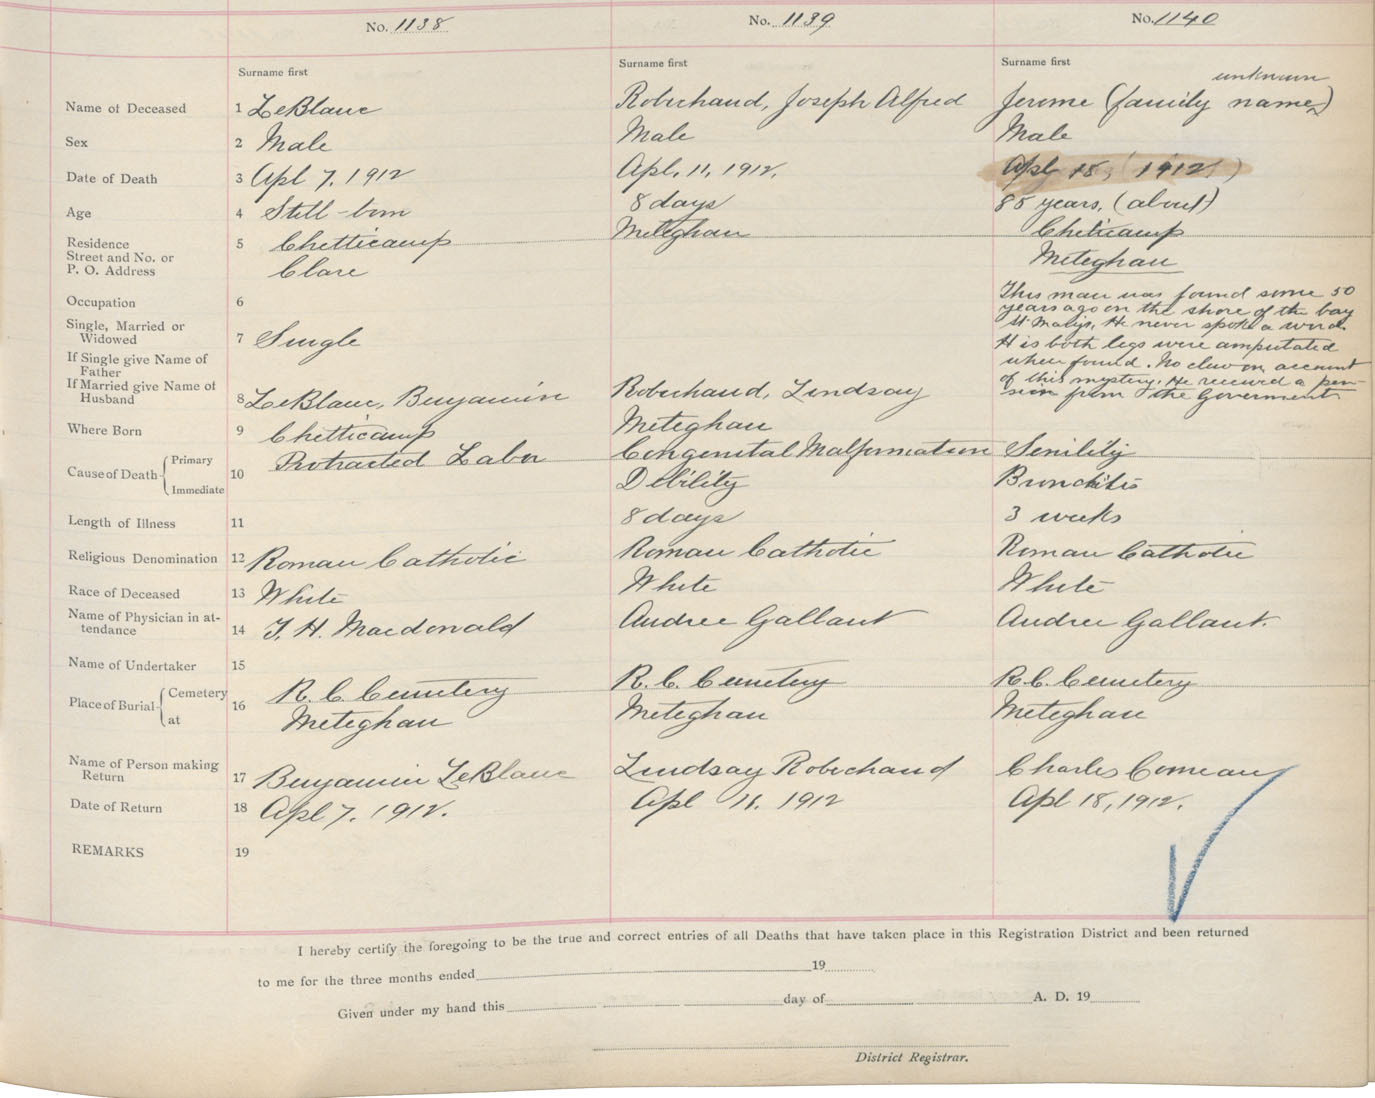 No. 1138 No. 1139 No. 1140
Surname first Surname first Surname first
unknown
Name of Deceased 1 LeBlanc Robichaud, Joseph Alfred Jerome (family name)
Sex 2 Male Male Male
Date of Death 3 Apl 7, 1912 Apl. 11, 1912. Apl 18, (1912)
Age 4 Still-born 8 days 85 years, (about)
Residence 5 Chetticamp Meteghan Cheticamp
Street and No. or
P. O. Address Clare Meteghan
Occupation 6
This man was found some 50
years ago on the shore of the bay
St Marys. He never spoke a word.
His both legs were amputated
when found. No clew on account
of this mystery. He received a pen-
sion from the Goverment.
Single, Married or
Widowed 7 Single
If Single give Name of
Father
If Married give Name of
Husband 8 LeBlanc, Benjamin Robichaud, Lindsay
Where Born 9 Chetticamp Meteghan
Cause of Death Primary 10 Protracted Labor Congenital Malformation Senility
Immediate Debility Bronchitis
Length of Illness 11 8 days 3 weeks
Religious Denomination 12 Roman Catholic Roman Catholic Roman Catholic
Race of Deceased 13 White White White
Name of Physician in at-
tendance 14 T. H. Macdonald Andree Gallant Andree Gallant.
Name of Undertaker 15
Place of Burial Cemetery 16 R. C. Cemetery R. C. Cemetery R.C. Cemetery
at Meteghan Meteghan Meteghan
Name of Person making
Return 17 Benjamin LeBlanc Lindsay Robichaud Charles Comeau
Date of Return 18 Apl 7, 1912. Apl 11. 1912 Apl 18, 1912.
REMARKS 19
I hereby certify the foregoing to be the true and correct entries of all Deaths that have taken place in this Registration District and been returned
to me for the three months ended 19
Given under my hand this day of A. D. 19
District Registrar.